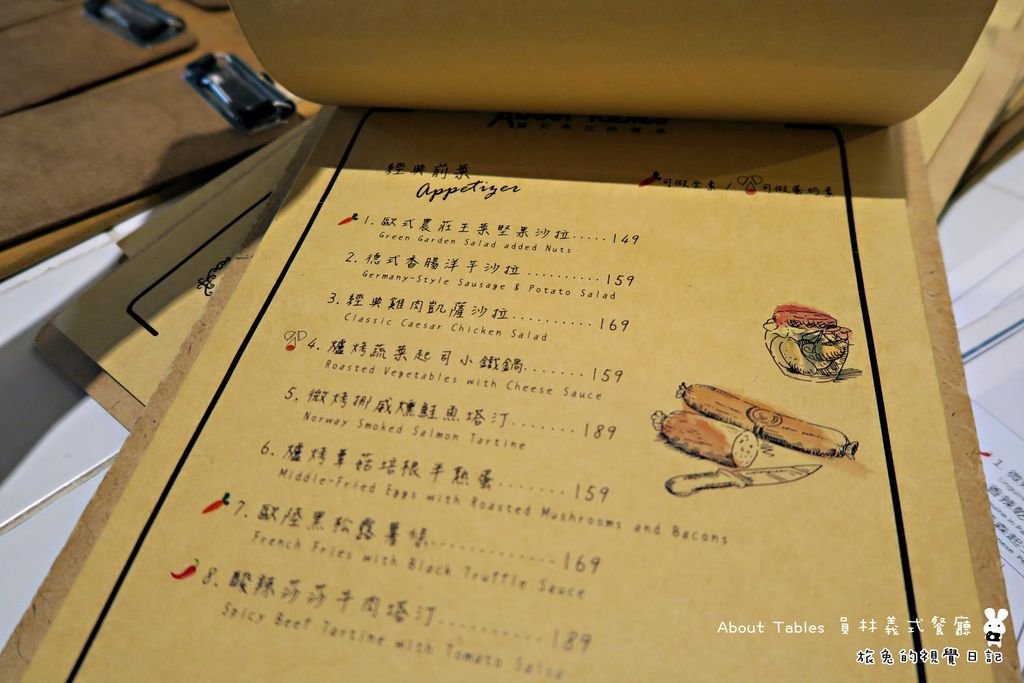 About Tables
經典前菜
Appetizer
可做全素 / 可做蛋奶素
1. 歐式農莊生菜堅果沙拉.....149
Green Garden Salad added Nuts
2. 德式香腸洋芋沙拉..........159
Germany-Style Sausage & Potato Salad
3. 經典雞肉凱薩沙拉..........169
Classic Caesar Chicken Salad
4. 爐烤蔬菜起司小鐵鍋.......159
Roasted Vegetables with Cheese Sauce
5. 微烤挪威燻鮭魚塔汀.......189
Norway Smoked Salmon Tartine
6. 爐烤蕈菇培根半熟蛋.......159
Middle-Fried Eggs with Roasted Mushrooms and Bacons
7. 歐陸黑松露薯條............169
French Fries with Black Truffle Sauce
8. 酸辣莎莎牛肉塔汀..........189
Spicy Beef Tartine with Tomato Salsa
About Tables 員林義式餐廳
旅兔的視覺日記